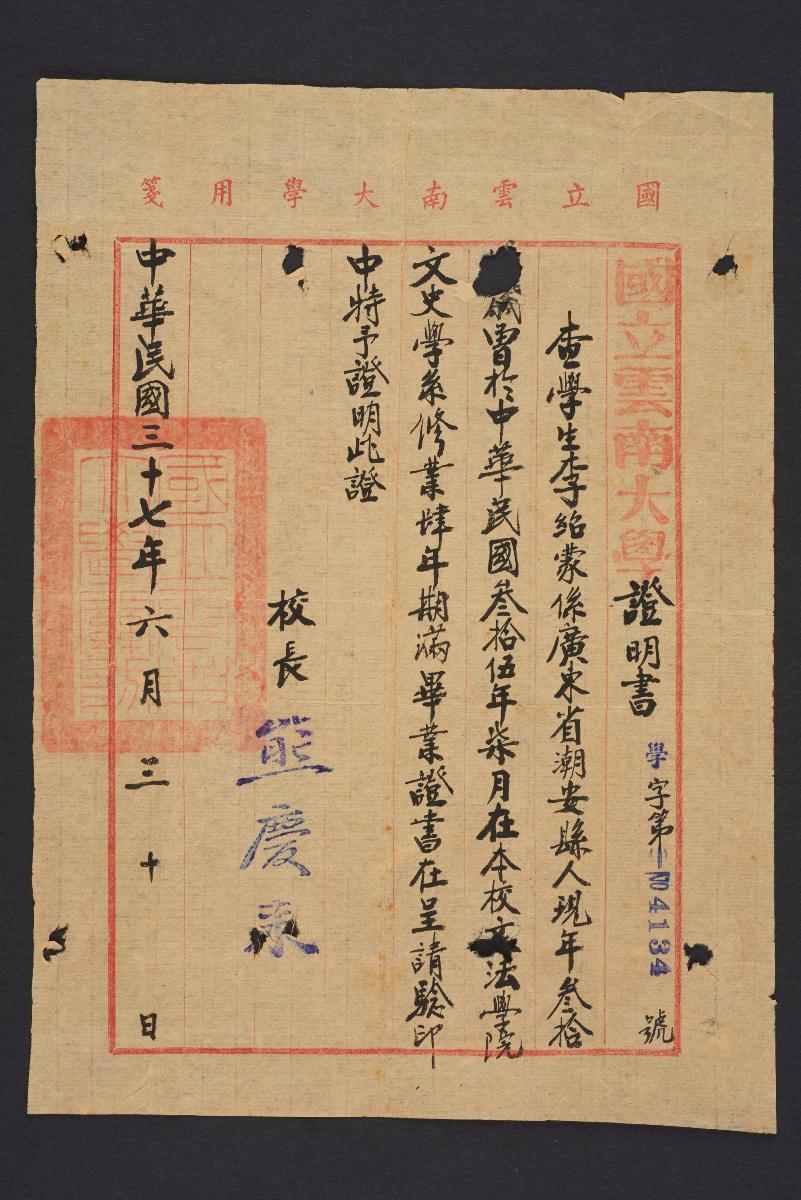 國立雲南大學用箋
國立雲南大學證明書 學字第NO4134號
查學生李紹蒙係廣東省潮安縣人現年叁拾
歲曾於中華民國叁拾伍年柒月在本校文法學院
文史學系修業肆年期滿畢業證書在呈請驗印
中特予證明此證
校長 熊慶來
中華民國三十七年六月三十日